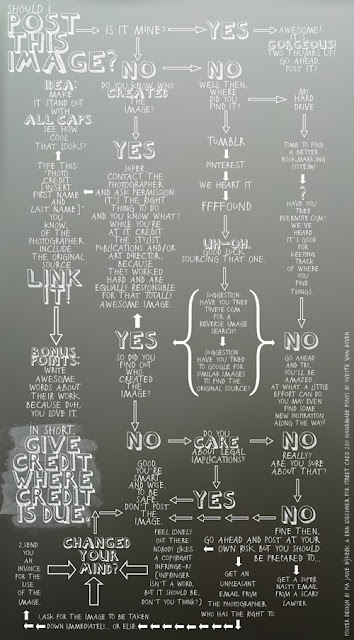 SHOULD I
POST
THIS
IMAGE?
IS IT MINE?
YES
AWESOME!
IT'S
GORGEOUS!
TWO THUMBS UP!
GO AHEAD,
POST IT!
NO
DO YOU KNOW WHO
CREATED
THE
IMAGE?
NO
WELL THEN,
WHERE
DID YOU
FIND IT?
MY
HARD
DRIVE
TIME TO FIND
A BETTER
BOOKMARKING
SYSTEM!
?
HAVE YOU
TRIED
EVERNOTE.COM?
WE'VE
HEARD
IT'S GOOD
FOR
KEEPING
TRACK
OF WHERE
YOU
FIND
THINGS.
TUMBLR
PINTEREST
WE HEART IT
FFFFOUND
UH-OH.
GOOD LUCK
SOURCING THAT ONE.
SUGGESTION:
HAVE YOU TRIED
TINEYE.COM
FOR A
REVERSE IMAGE
SEARCH?
SUGGESTION:
HAVE YOU TRIED
TO GOOGLE FOR
SIMILAR IMAGES
TO FIND THE
ORIGINAL SOURCE?
YES
SUPER.
CONTACT THE
PHOTOGRAPHER
AND ASK PERMISSION.
IT'S THE RIGHT
THING TO DO
AND YOU KNOW WHAT?
WHILE YOU'RE
AT IT CREDIT
THE STYLIST,
PUBLICATIONS AND/OR
ART DIRECTOR,
BECAUSE
THEY WORKED
HARD AND ARE
EQUALLY RESPONSIBLE
FOR THAT TOTALLY
AWESOME IMAGE
IDEA:
MAKE
IT STAND OUT
WITH
ALL CAPS.
SEE HOW
COOL
THAT LOOKS?
TYPE THIS:
"PHOTO
CREDIT
[INSERT
FIRST NAME
AND
LAST NAME]"
YOU
KNOW,
OF THE
PHOTOGRAPHER
INCLUDE
THE ORIGINAL
SOURCE.
LINK
IT!
BONUS
POINTS:
WRITE
AWESOME
WORDS
ABOUT THEIR
WORK
BECAUSE DUH,
YOU LOVE IT.
YES
SO DID YOU
FIND OUT
WHO
CREATED
THE
IMAGE?
NO
GO AHEAD
AND TRY.
YOU'LL BE
AMAZED
AT WHAT A LITTLE
EFFORT CAN DO
YOU MAY EVEN
FIND SOME
NEW INSPIRATION
ALONG THE WAY!
NO
GOOD.
YOU'RE
SMART
AND WISE
TO BE
SAFE.
DON'T POST
THE
IMAGE.
DO YOU
CARE
ABOUT LEGAL
IMPLICATIONS?
YES
NO
REALLY?
ARE YOU SURE
ABOUT THAT?
NO
FINE THEN,
GO AHEAD AND POST AT YOUR
OWN RISK, BUT YOU SHOULD
BE PREPARED TO...
GET
AN
UNPLEASANT
EMAIL FROM
THE PHOTOGRAPHER
WHO HAS THE RIGHT TO:
GET A SUPER
NASTY EMAIL
FROM A
SCARY
LAWYER
IN SHORT,
GIVE
CREDIT
WHERE
CREDIT
IS DUE.
CHANGED
YOUR
MIND?
FEEL LONELY
OUT THERE.
NOBODY LIKES
A COPYRIGHT
INFRINGE-R!
(INFRINGER
ISN'T A WORD,
BUT IT SHOULD BE,
DON'T YOU THINK?)
2.SEND
YOU
AN
INVOICE
FOR THE
USE
OF THE
IMAGE.
1.ASK FOR THE IMAGE TO BE TAKEN
DOWN IMMEDIATELY... OR ELSE